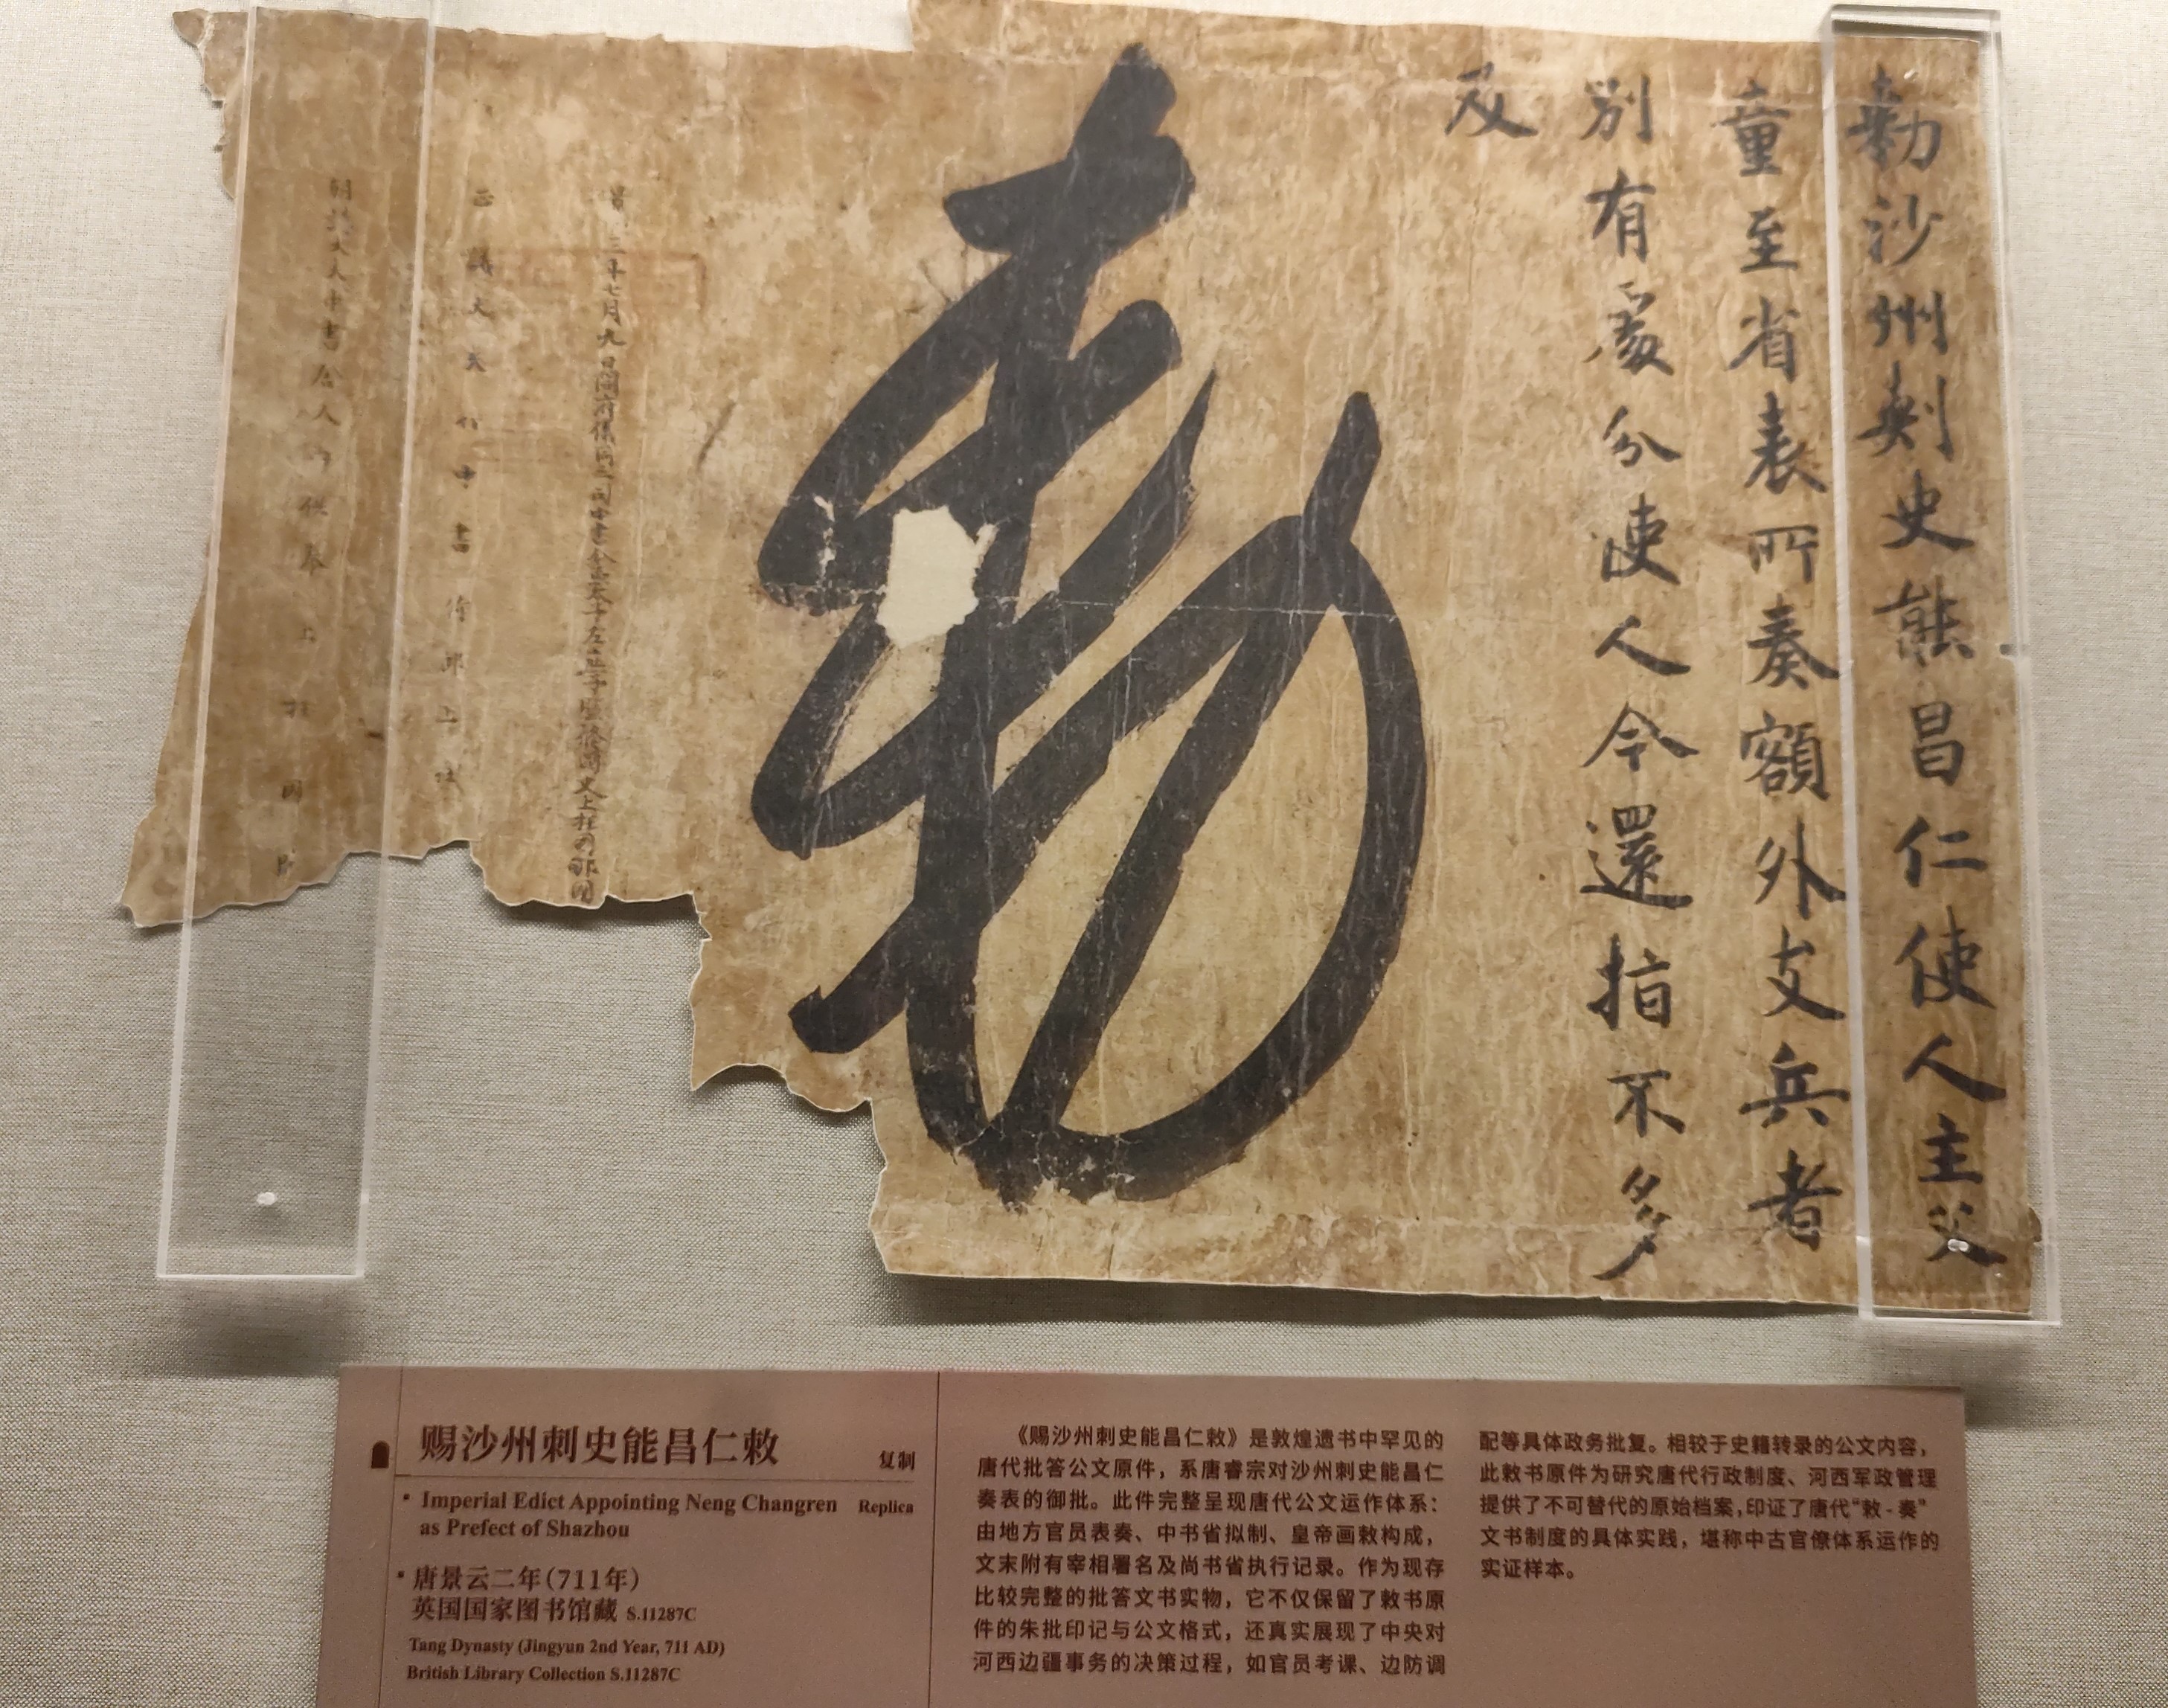 勅沙州刺史熊昌仁使人主父
童至省表所奏額外支兵者
別有處分使人今還指不多
及
勅
三年七月九日
朝
大夫中書舍人
赐沙州刺史能昌仁敕
复制
Imperial Edict Appointing Neng Changren
as Prefect of Shazhou
Replica
唐景云二年（711年）
英国国家图书馆藏 S.11287C
Tang Dynasty (Jingyun 2nd Year, 711 AD)
British Library Collection S.11287C
《赐沙州刺史能昌仁敕》是敦煌遗书中罕见的
唐代批答公文原件，系唐睿宗对沙州刺史能昌仁
奏表的御批。此件完整呈现唐代公文运作体系：
由地方官员表奏、中书省拟制、皇帝画敕构成，
文末附有宰相署名及尚书省执行记录。作为现存
比较完整的批答文书实物，它不仅保留了敕书原
件的朱批印记与公文格式，还真实展现了中央对
河西边疆事务的决策过程，如官员考课、边防调
配等具体政务批复。相较于史籍转录的公文内容，
此敕书原件为研究唐代行政制度、河西军政管理
提供了不可替代的原始档案，印证了唐代“敕-奏”
文书制度的具体实践，堪称中古官僚体系运作的
实证样本。